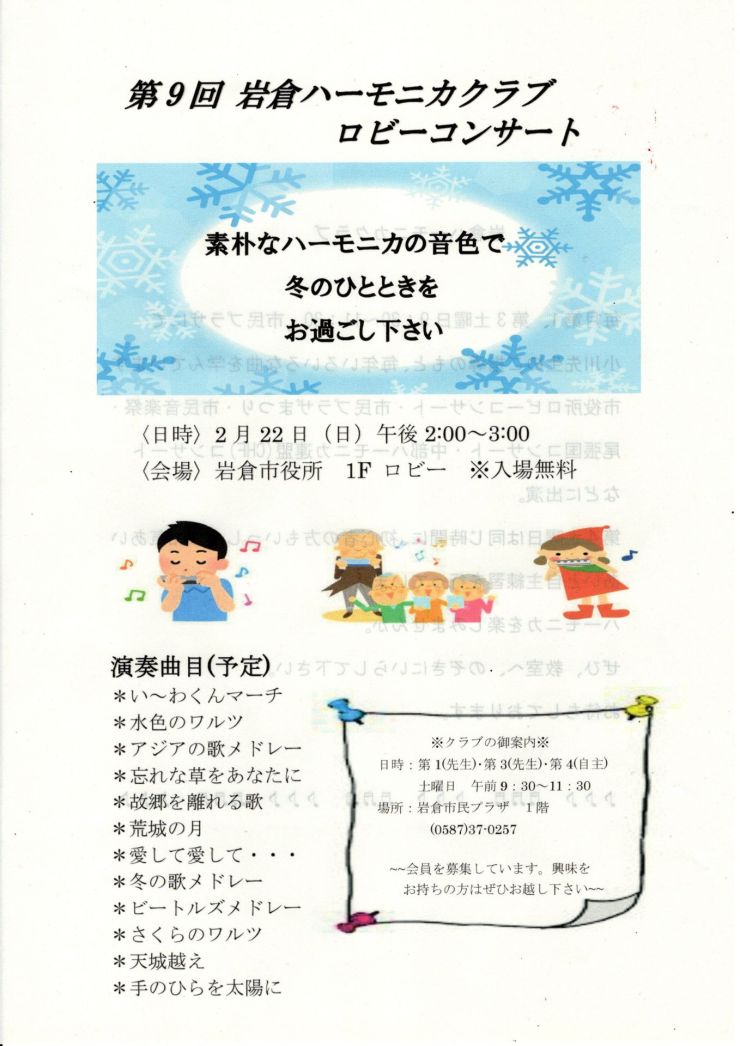 第9回 岩倉ハーモニカクラブ
ロビーコンサート
素朴なハーモニカの音色で
冬のひとときを
お過ごし下さい
〈日時〉2月22日（日）午後2:00～3:00
〈会場〉岩倉市役所　1F ロビー　※入場無料
演奏曲目(予定)
＊い～わくんマーチ
＊水色のワルツ
＊アジアの歌メドレー
＊忘れな草をあなたに
＊故郷を離れる歌
＊荒城の月
＊愛して愛して・・・
＊冬の歌メドレー
＊ビートルズメドレー
＊さくらのワルツ
＊天城越え
＊手のひらを太陽に
※クラブの御案内※
日時：第1(先生)・第3(先生)・第4(自主)
土曜日　午前9：30～11：30
場所：岩倉市民プラザ　1階
(0587)37-0257
~~会員を募集しています。興味を
お持ちの方はぜひお越し下さい~~